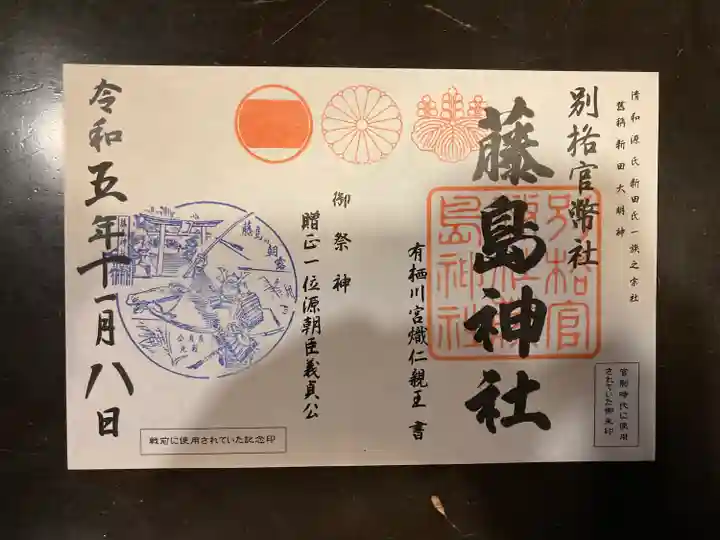 清和源氏新田氏一族之宗社
舊稱新田大明神
別格官幣社
藤島神社
別格官
幣社藤
島神社
官幣時代に使用
されていた御朱印
有栖川宮熾仁親王 書
御祭神
贈正一位源朝臣義貞公
藤島の朝露
戦前に使用されていた記念印
令和五年十一月八日